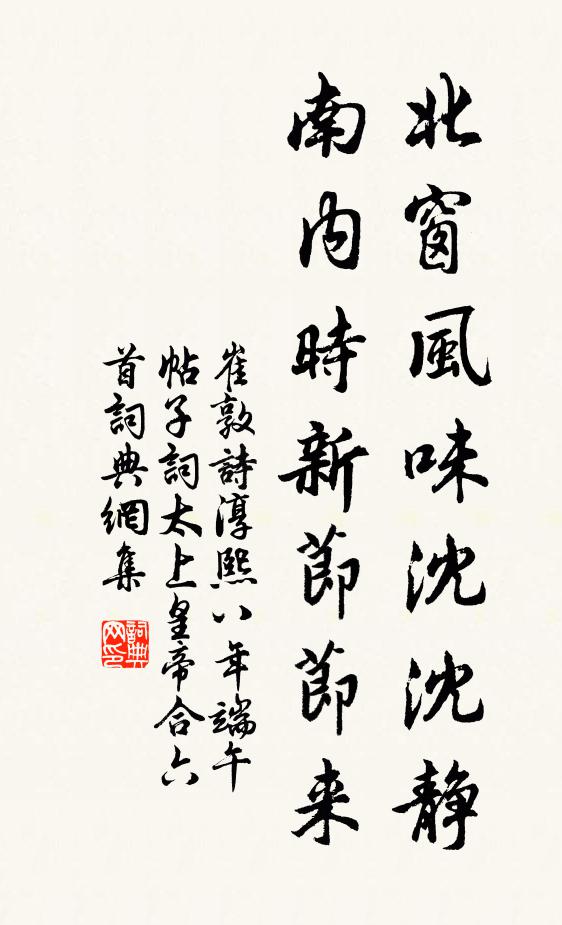 北窗風味沈沈靜
南内時新節節来
崔敦詩淳熙八年端午
帖子詞太上皇帝合六
首詞典網集
詞典网印